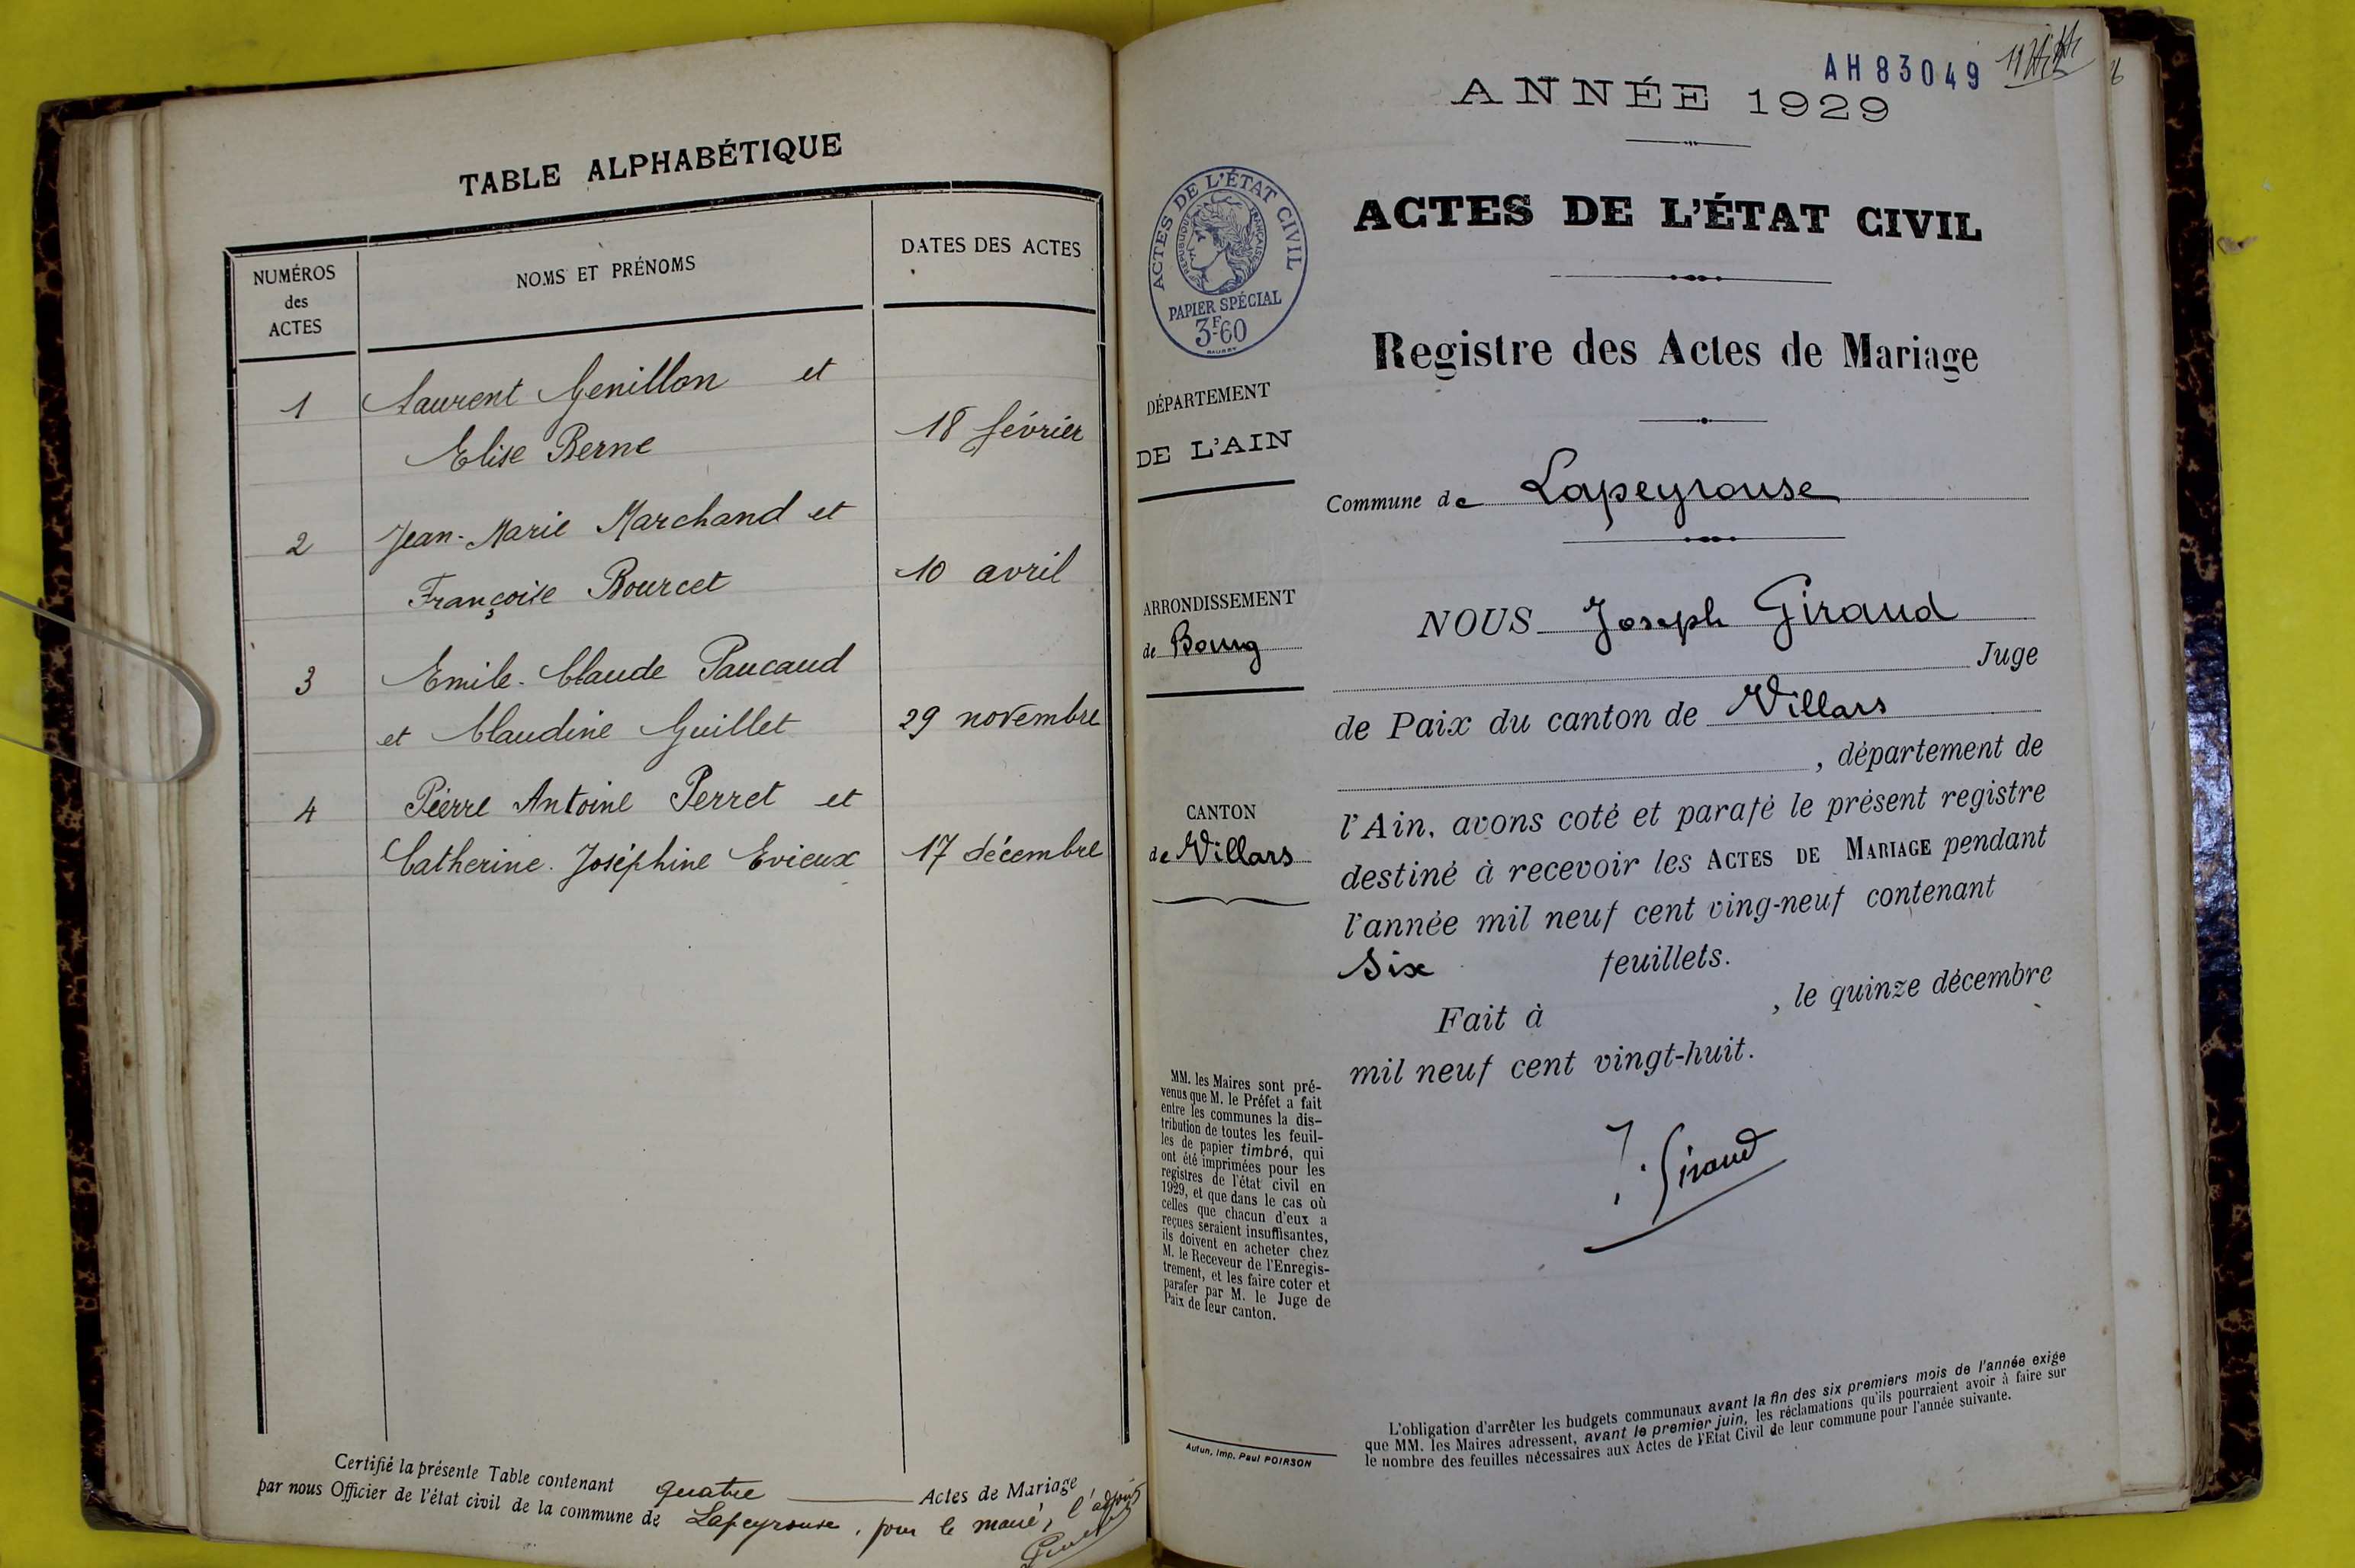 TABLE ALPHABÉTIQUE
NUMÉROS
des
ACTES
NOMS ET PRÉNOMS
DATES DES ACTES
1
Laurent Genillon et
Elise Berne
18 février
2
Jean-Marie Marchand et
Françoise Bourcet
10 avril
3
Emile-Claude Paucaud
et Claudine Guillet
29 novembre
4
Pierre Antoine Perret et
Catherine. Joséphine Evieux
17 décembre
Certifié la présente Table contenant quatre Actes de Mariage
par nous Officier de l'état civil de la commune de Lapeyrouse, pour le maire, l'adjoint
AH83049
ANNÉE 1929
ACTES DE L'ÉTAT CIVIL
RÉPUBLIQUE FRANÇAISE
PAPIER SPÉCIAL
3F60
DÉPARTEMENT
DE L'AIN
ARRONDISSEMENT
de Bourg
CANTON
de Villars
MM. les Maires sont pré-
venus que M. le Préfet a fait
entre les communes la dis-
tribution de toutes les feuil-
les de papier timbré, qui
ont été imprimées pour les
registres de l'état civil en
1929, et que dans le cas où
celles que chacun d'eux a
reçues seraient insuffisantes,
ils doivent en acheter chez
M. le Receveur de l'Enregis-
trement, et les faire coter et
parafer par M. le Juge de
Paix de leur canton.
Autun, Imp. Paul POIRSON
ACTES DE L'ÉTAT CIVIL
Registre des Actes de Mariage
Commune de Lapeyrouse
NOUS Joseph Giraud
Juge
de Paix du canton de Villars
, département de
l'Ain, avons coté et parafé le présent registre
destiné à recevoir les ACTES DE MARIAGE pendant
l'année mil neuf cent ving-neuf contenant
Six feuillets.
Fait à , le quinze décembre
mil neuf cent vingt-huit.
J. Giraud
L'obligation d'arrêter les budgets communaux avant la fin des six premiers mois de l'année exige
que MM. les Maires adressent, avant le premier juin, les réclamations qu'ils pourraient avoir à faire sur
le nombre des feuilles nécessaires aux Actes de l'Etat Civil de leur commune pour l'année suivante.